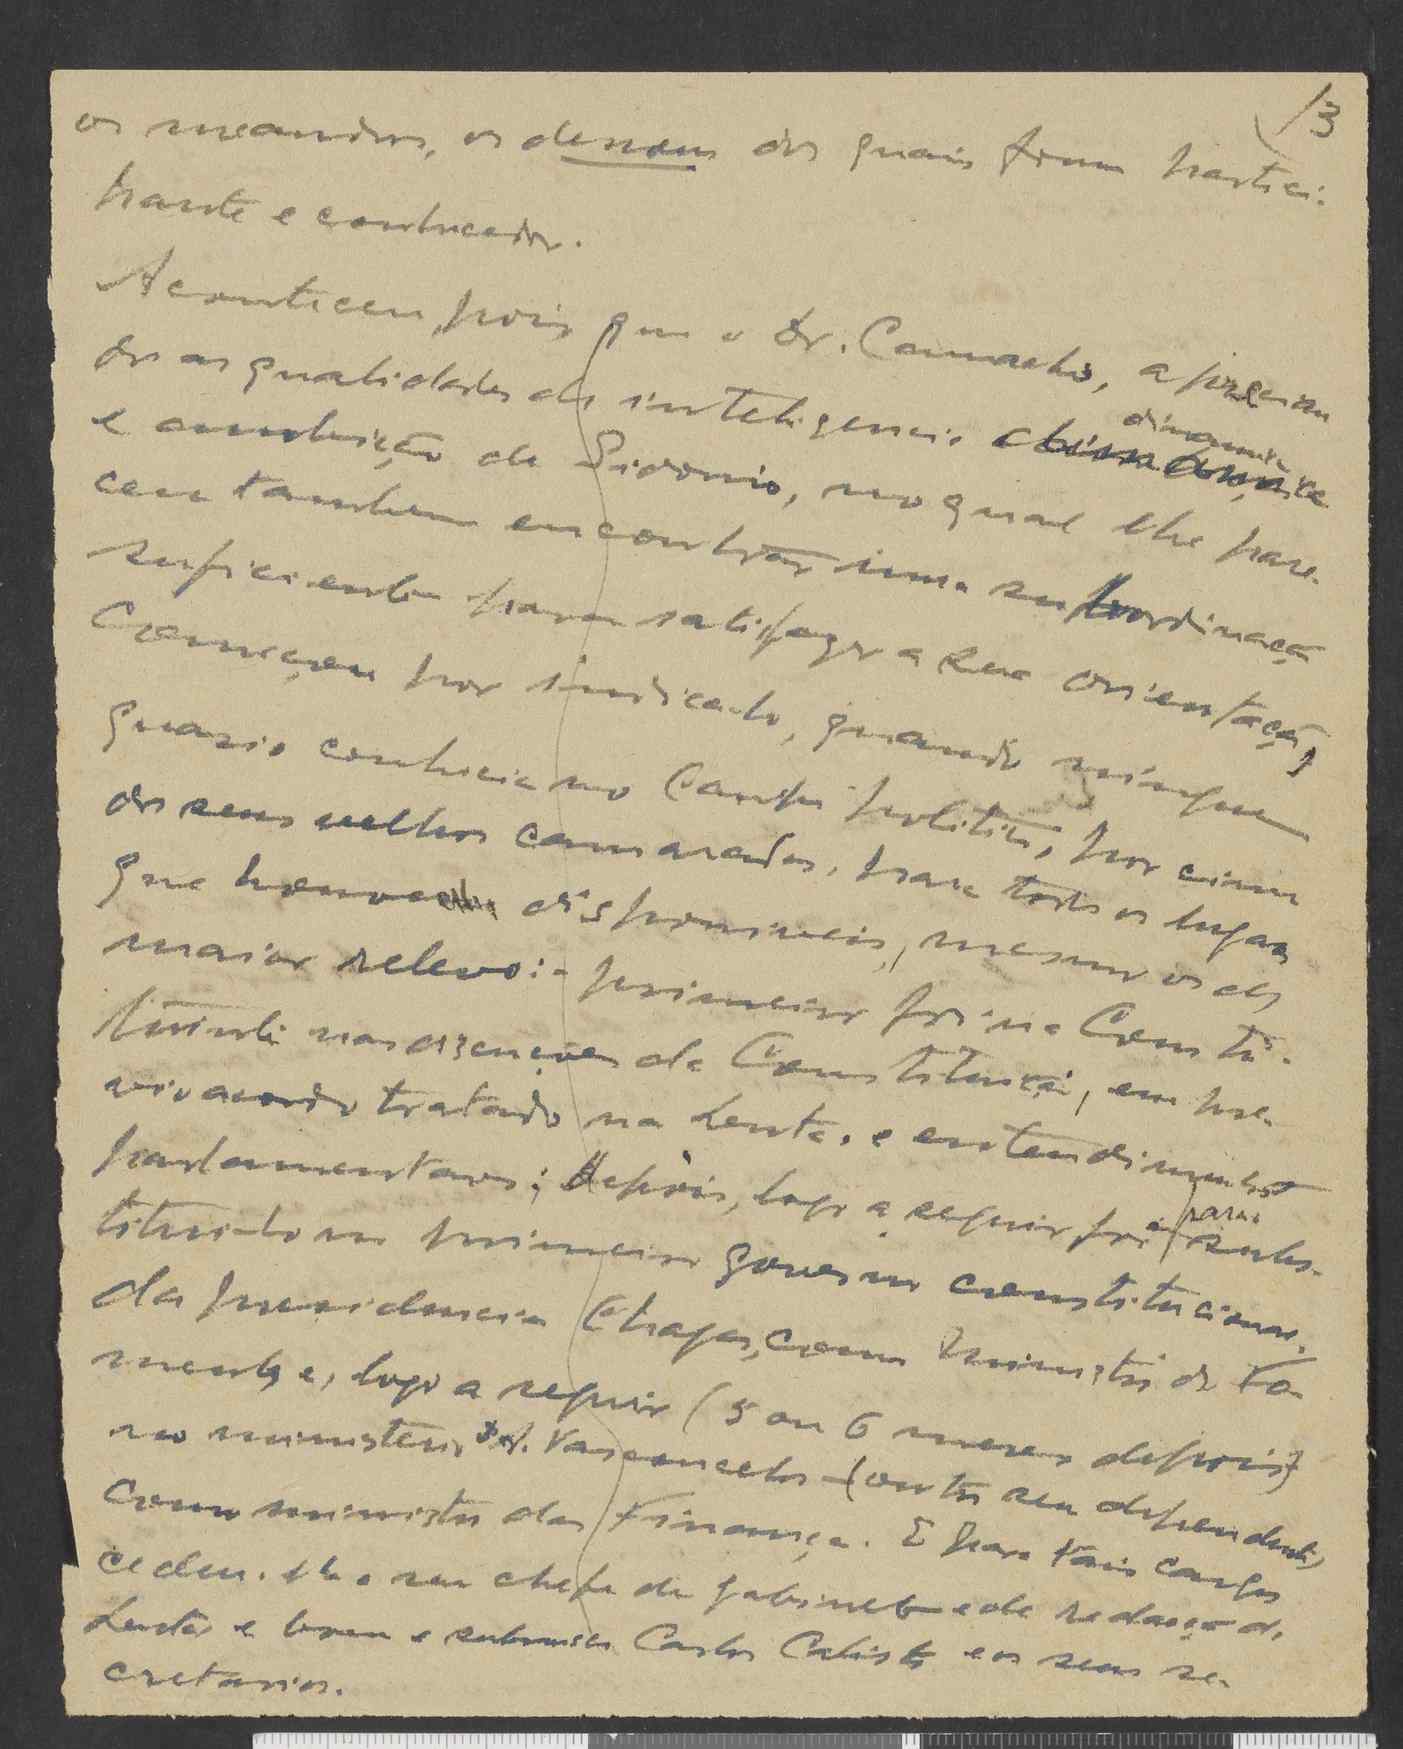 13
os meandros, os dessous dos quais foram partici-
pante e conhecedor.
Aconteceu, pois que o Dr. Camacho, apreciou
dos as qualidades de inteligencia dinamica
e ambição de Sidonio, no qual lhe pare-
ceu tambem encontrar uma subordinação
suficiente para satisfazer a sua orientação,
Começou por indica-lo, quando ninguem
quasi o conhecia no campo politico, por cima
dos seus velhos camaradas, para todos os lugares
que houve disponiveis, mesmo os de
maior relevo:- primeiro foi na Consti-
tuinte nas discussões da Constituição, em pre-
vio acordo tratado na Lucta, e entendimentos
parlamentares; depois, logo a seguir foi para subs-
titui-lo no primeiro governo constitucional,
da presidencia Chagas, como Ministro do Fo-
mento e, logo a seguir (5 ou 6 meses depois)
no ministerio A. Vasconcelos (outro seu dependente)
como ministro das Finanças. E para tais cargos
cedeu-lhe o seu chefe de gabinete e de redação da
Lucta e bom e submisso Carlos Calisto e os seus se-
cretarios.